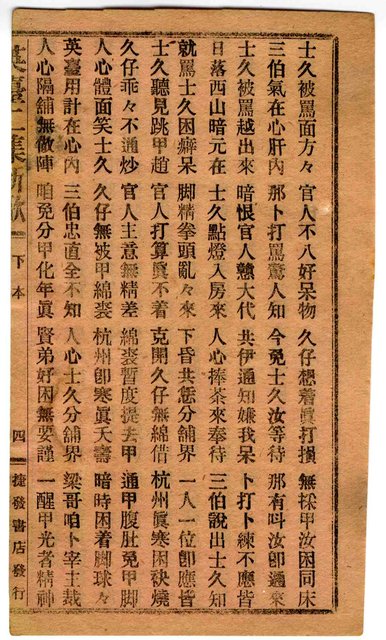 士久被罵面方々 官人不八好呆物 久仔想着眞打損 無採甲汝困同床
三伯氣在心肝內 那卜打罵驚人知 今免士久汝等待 那有叫汝卽過來
士久被罵越出來 暗恨官人戇大代 共伊通知嫌我呆 卜打卜練不應皆
日落西山暗元在 士久點燈入房來 人心捧茶來奉待 三伯說出士久知
就罵士久困癖呆 脚精拳頭亂々來 下昏共恁分舖界 一人一位卽應皆
士久聽見跳甲趙 官人打算眞不着 克開久仔無綿借 杭州眞寒困袂燒
久仔乖々不通炒 官人主意無精差 綿裘暫度提去甲 通甲腹肚免甲脚
人心體面笑士久 久仔無被甲綿裘 杭州卽寒眞夭壽 暗時困着脚球々
英臺用計在心內 三伯忠直全不知 人心士久分舖界 梁哥咱卜宰主裁
人心隔舖無倣陣 咱免分甲化年眞 賢弟好困無要謹 一醒甲光者精神
英臺二集新歌 下本 四 捷發書店發行